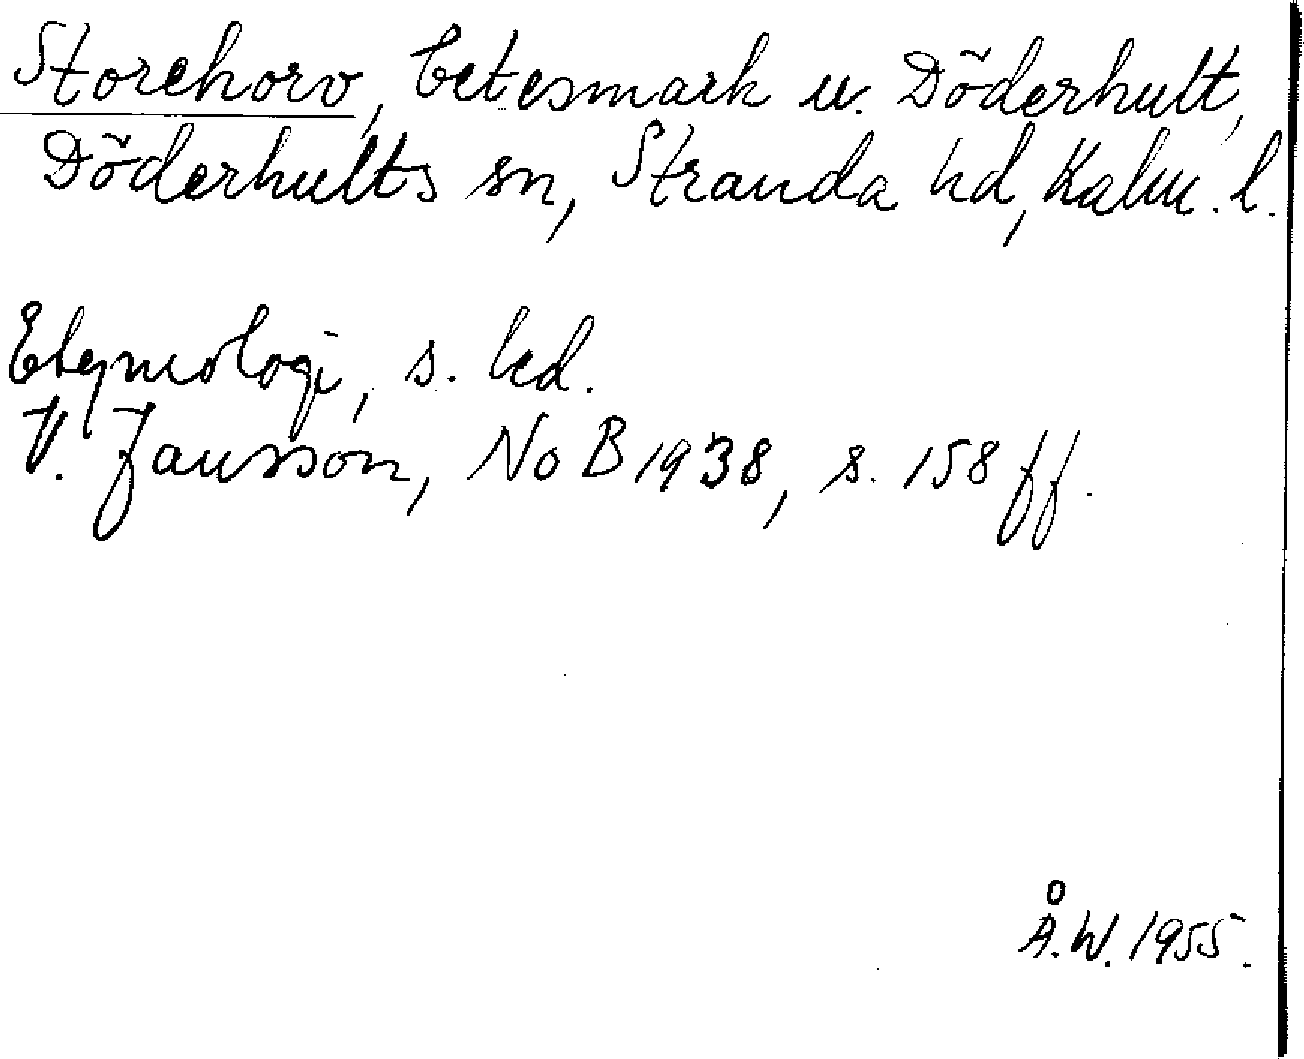 Storehorv, betesmark u. Döderhult,
Döderhults sn, Stranda hd, Kalm. l.
Etymologi, s. led.
V. Jansson, NoB 1938, s. 158 ff.
Å.W. 1955.